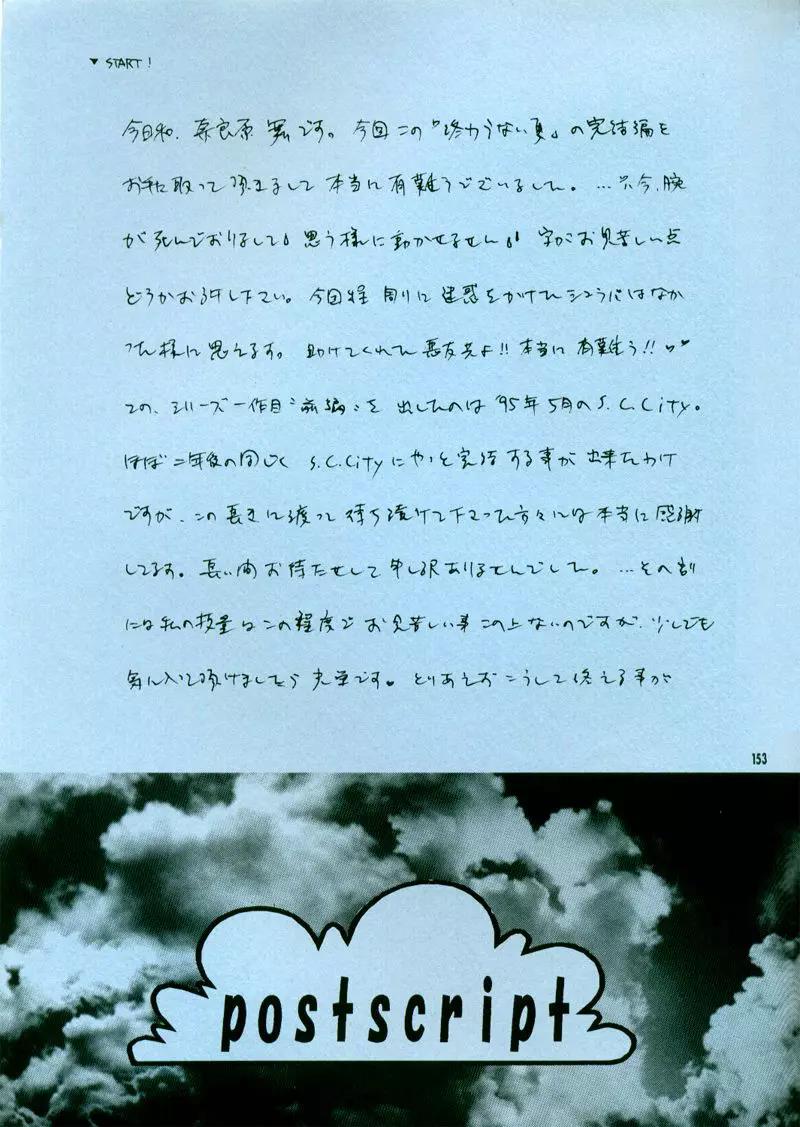 ▼ START!
今日和、奈良原 舞です。今回この『終わらない夏』の完結編を
お手に取って頂きまして本当に有難うございました。…只今、腕
が死んでおりまして 思う様に動かせません 字がお見苦しい点
どうかお許し下さい。今回程 周りに迷惑をかけたシュラバはなか
った様に思えます。助けてくれた悪友共よ!!本当に有難う!!
この、シリーズ一作目"前編"を出したのは'95年5月のS.C.City。
ほぼ二年後の同じく S.C.Cityにやっと完結する事が出来たわけ
ですが、この長きに渡って待ち続けて下さった方々には本当に感謝
してます。長い間お待たせして申し訳ありませんでした。…その割
には私の技量はこの程度でお見苦しい事この上ないのですが、少しでも
気に入って頂けましたら光栄です。とりあえずこうして終える事が
153
postscript